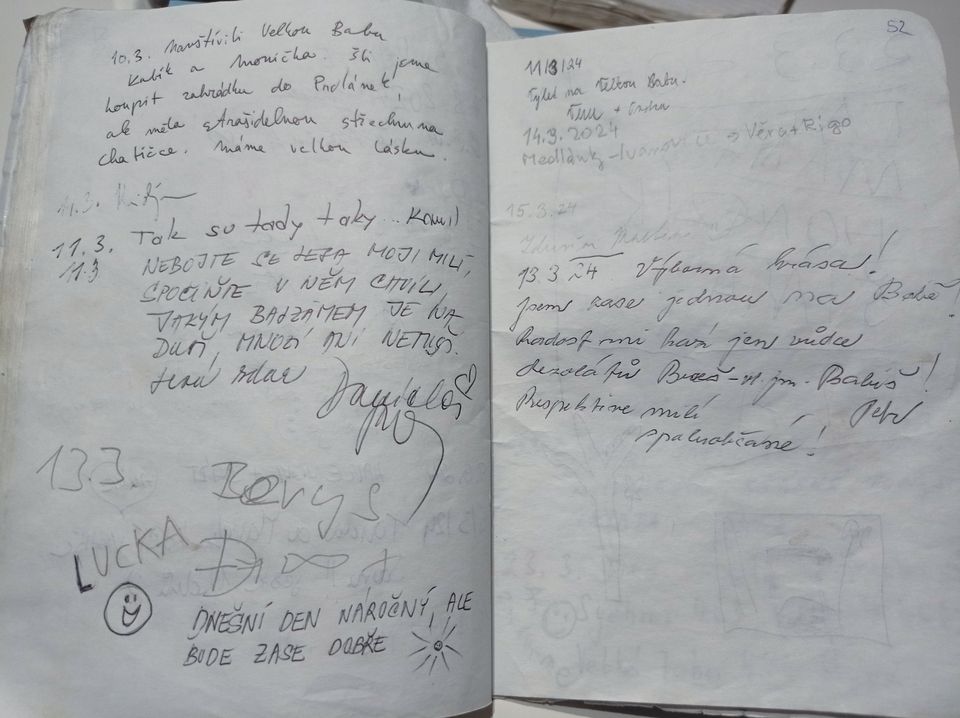 10.3. navštívili Velkou Babu
Kubík a Monička. Šli jsme
koupit zahrádku do Prdlánek,
ale měla strašidelnou střechu na
chatičce. Máme velkou lásku.
11.3.
11.3. Tak su tady taky .. Kamil
11.3 NEBOJTE SE LESA MOJI MILÍ,
SPOČIŇTE V NĚM CHVÍLI,
JAKÝM BALZÁMEM JE NA
DUŠI, MNOZÍ ANI NETUŠÍ.
Lesu zdar
Daniela
13.3. Borys
LUCKA
DNEŠNÍ DEN NÁROČNÝ, ALE
BUDE ZASE DOBŘE
52
11/3/24
Výlet na Velkou Babu.
14.3.2024
Medlánky - Ivanovice → Věra + Rigo
15.3.24
13.3 24 Výborná krása!
Jsem zase jednou na Babě!
Radost mi kazí jen vůdce
dezolátů Bureš - vl. jm. Babiš!
Petr
Perspektive milí
spoluobčané!